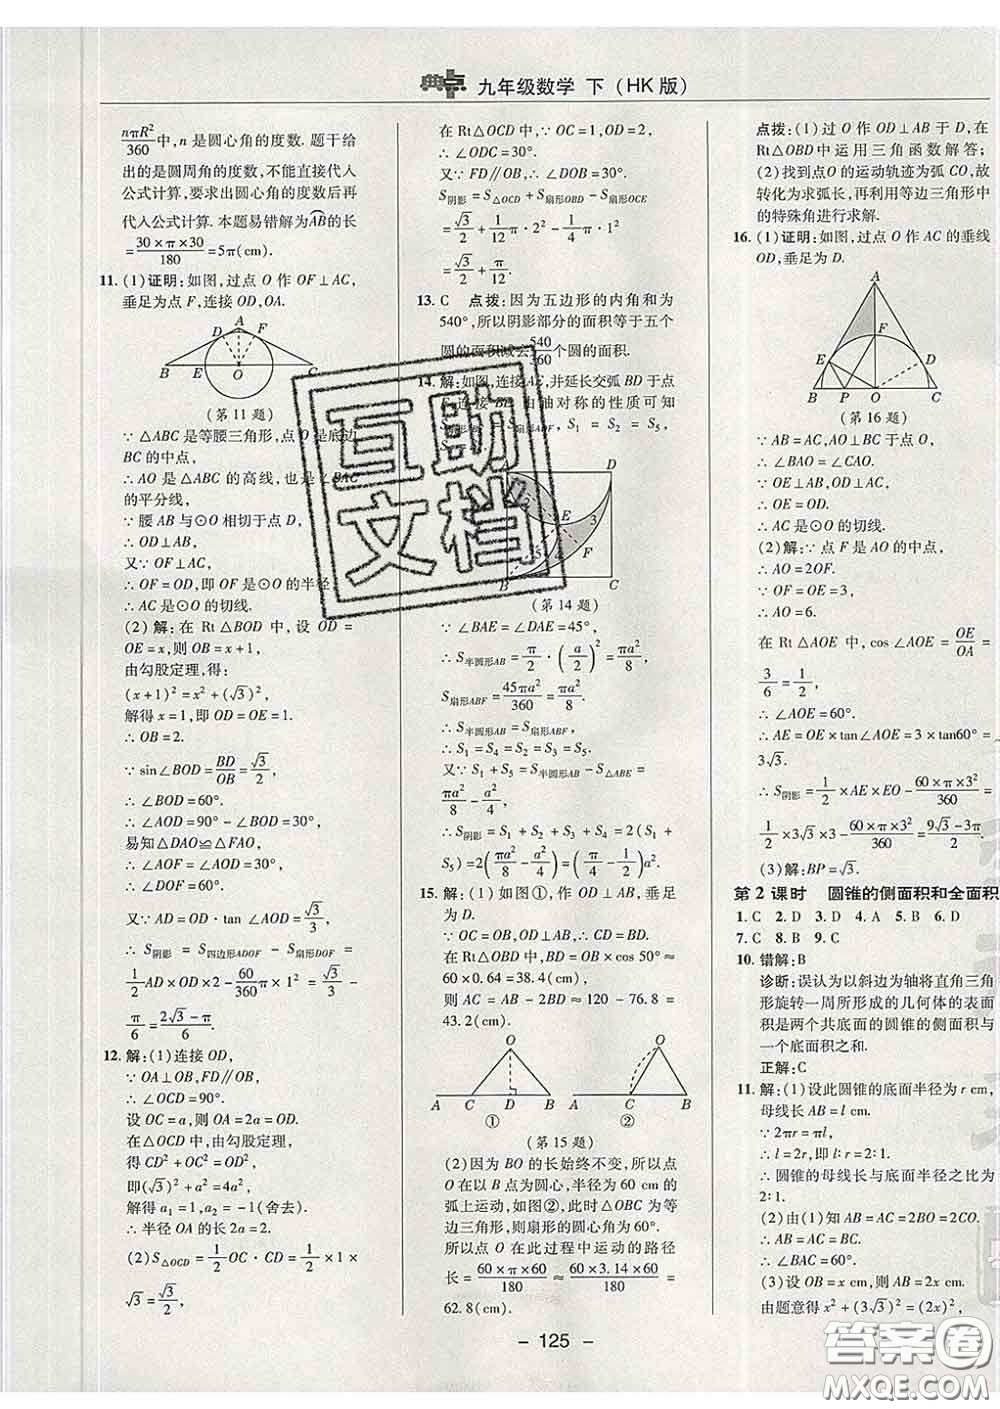 典点 九年级数学 下(HK版)
nπR²/360中,n是圆心角的度数.题干给
出的是圆周角的度数,不能直接代入
公式计算,要求出圆心角的度数后再
代入公式计算.本题易错解为AB的长
=30×π×30/180=5π(cm).
11.(1)证明:如图,过点O作OF⊥AC,
垂足为点F,连接OD,OA.
A
D F
B O C
(第11题)
∵△ABC是等腰三角形,点O是底边
BC的中点,
∴AO是△ABC的高线,也是∠BAC
的平分线,
∵腰AB与⊙O相切于点D,
∴OD⊥AB,
又∵OF⊥AC,
∴OF=OD,即OF是⊙O的半径,
∴AC是⊙O的切线.
(2)解:在Rt△BOD中,设OD=
OE=x,则OB=x+1,
由勾股定理,得:
(x+1)²=x²+(√3)²,
解得x=1,即OD=OE=1.
∴OB=2.
∵sin∠BOD=BD/OB=√3/2,
∴∠BOD=60°.
∴∠AOD=90°-∠BOD=30°.
易知△DAO≌△FAO,
∴∠AOF=∠AOD=30°.
∴∠DOF=60°.
又∵AD=OD·tan∠AOD=√3/3,
∴S阴影=S四边形ADOF-S扇形DOF=
1/2 AD×OD×2-60/360π×1²=√3/3-
π/6=(2√3-π)/6.
12.解:(1)连接OD,
∵OA⊥OB,FD∥OB,
∴∠OCD=90°.
设OC=a,则OA=2a=OD,
在△OCD中,由勾股定理,
得CD²+OC²=OD²,
即(√3)²+a²=4a²,
解得a₁=1,a₂=-1(舍去).
∴半径OA的长2a=2.
(2)S△OCD=1/2 OC·CD=1/2×1×
√3=√3/2,
在Rt△OCD中,∵OC=1,OD=2,
∴∠ODC=30°.
又∵FD∥OB,∴∠DOB=30°.
S阴影=S△OCD+S扇形OBD-S扇形OCE
=√3/2+1/12π·2²-1/4π·1²
=√3/2+π/12.
13.C 点拨:因为五边形的内角和为
540°,所以阴影部分的面积等于五个
圆的面积减去540/360个圆的面积.
14.解:如图,连接AC,并延长交弧BD于点
由轴对称的性质可知
S₁=S₂=S₅,
D
E 3
F
B C
(第14题)
∵∠BAE=∠DAE=45°,
∴S半圆形AB=π/2·(a/2)²=πa²/8,
S扇形ABF=45πa²/360=πa²/8.
∴S半圆形AB=S扇形ABF,
∴S₁=S₄=S₂=S₅.
又∵S₁+S₅=S半圆形AB-S△ABE=
πa²/8-a²/4,
∴S阴影=S₁+S₂+S₃+S₄=2(S₁+
S₅)=2(πa²/8-a²/4)=(π/4-1/2)a².
15.解:(1)如图①,作OD⊥AB,垂足
为D.
∵OC=OB,OD⊥AB,∴CD=BD.
在Rt△OBD中,BD=OB×cos50°≈
60×0.64=38.4(cm).
则AC=AB-2BD≈120-76.8=
43.2(cm).
O O
A C D B A C B
① ②
(第15题)
(2)因为BO的长始终不变,所以点
O在以B点为圆心,半径为60cm的
弧上运动,如图②,此时△OBC为等
边三角形,则扇形的圆心角为60°.
所以点O在此过程中运动的路径
长=60×π×60/180≈60×3.14×60/180=
62.8(cm)
点拨:(1)过O作OD⊥AB于D,在
Rt△OBD中运用三角函数解答;
(2)找到点O的运动轨迹为弧CO,故
转化为求弧长,再利用等边三角形中
的特殊角进行求解.
16.(1)证明:如图,过点O作AC的垂线
OD,垂足为D.
A
F
E D
B P O C
(第16题)
∵AB=AC,AO⊥BC于点O,
∴∠BAO=∠CAO.
∵OE⊥AB,OD⊥AC,
∴OE=OD.
∴AC是⊙O的切线.
(2)解:∵点F是AO的中点,
∴AO=2OF.
∵OF=OE=3,
∴AO=6.
在Rt△AOE中,cos∠AOE=OE/OA=
3/6=1/2,
∴∠AOE=60°.
∴AE=OE×tan∠AOE=3×tan60°=
3√3.
∴S阴影=1/2×AE×EO-60×π×3²/360=
1/2×3√3×3-60×π×3²/360=(9√3-3π)/2.
(3)解:BP=√3.
第2课时 圆锥的侧面积和全面积
1.C 2.D 3.D 4.A 5.B 6.D
7.C 8.B 9.C
10.错解:B
诊断:误认为以斜边为轴将直角三角
形旋转一周所形成的几何体的表面
积是两个共底面的圆锥的侧面积与
一个底面积之和.
正解:C
11.解:(1)设此圆锥的底面半径为r cm,
母线长AB=l cm.
∵2πr=πl,
∴l=2r,即l:r=2:1.
∴圆锥的母线长与底面半径之比为
2:1.
(2)由(1)知AB=AC=2BO=2CO.
∴AB=AC=BC.
∴∠BAC=60°.
(3)设OB=x cm,则AB=2x cm.
由题意得x²+(3√3)²=(2x)²,
- 125 -
互助
文档
答案圈
MXQE.COM